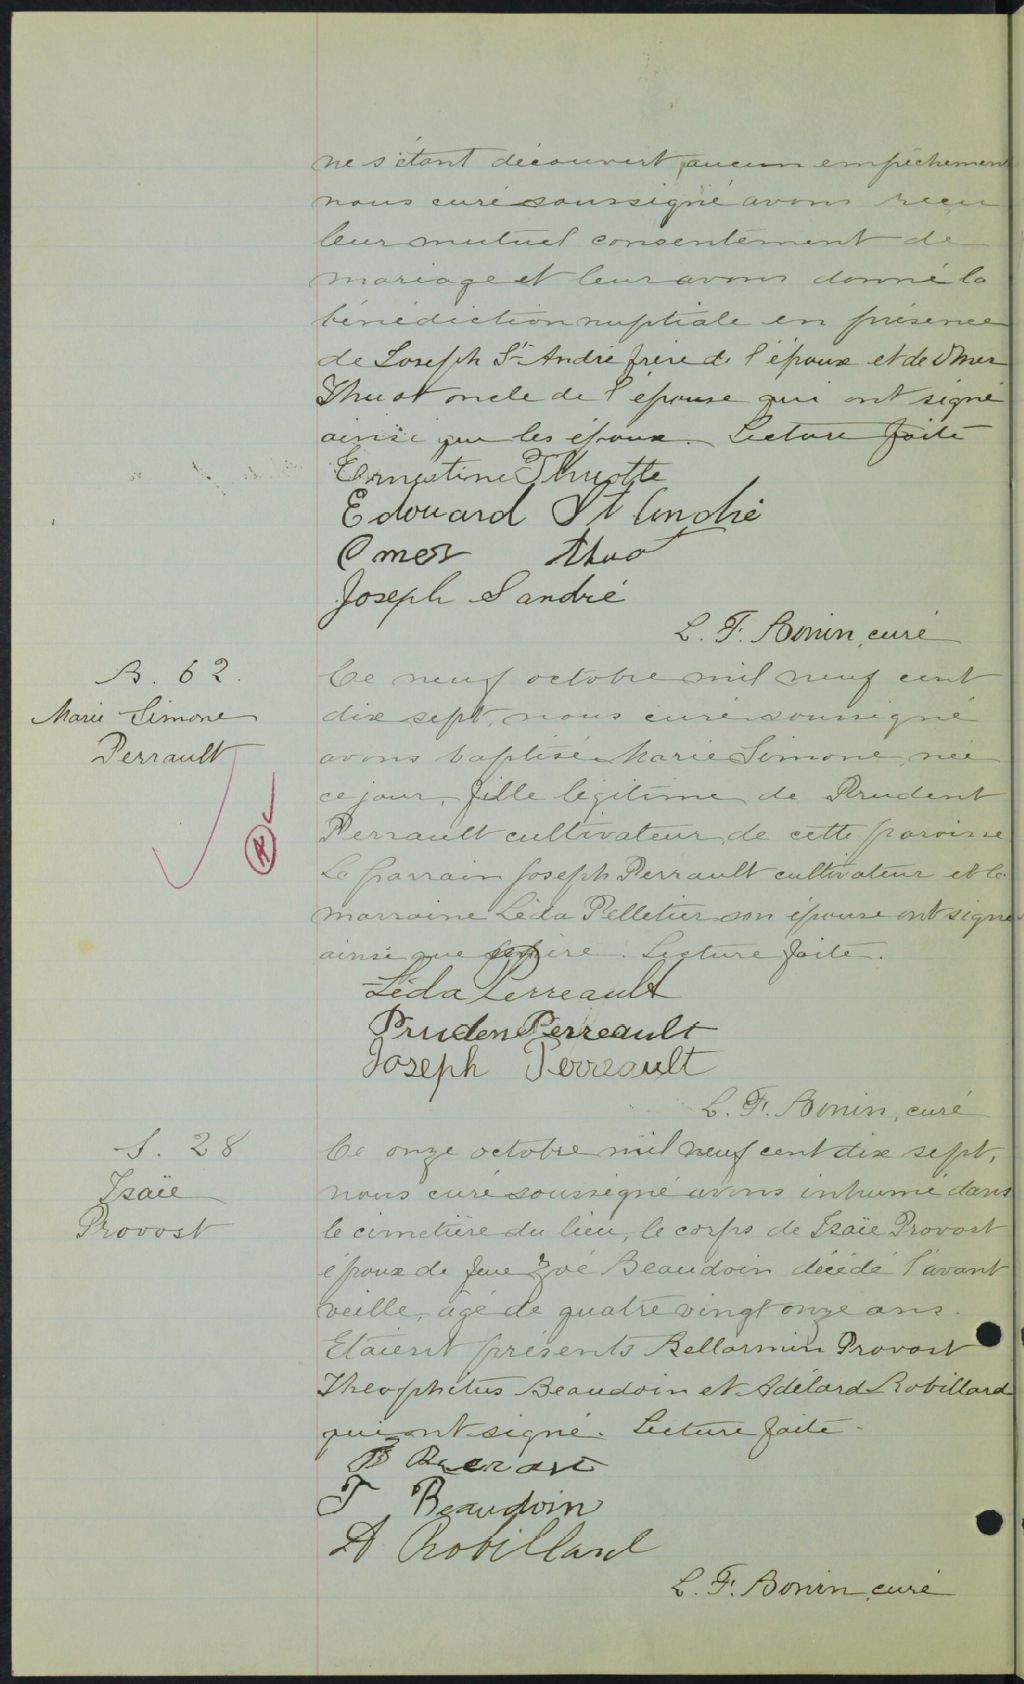 ne s'étant découvert aucun empêchement
nous curé soussigné avons reçu
leur mutuel consentement de
mariage et leur avons donné la
bénédiction nuptiale en présence
de Joseph St André frère de l'époux et de Omer
Thuot oncle de l'épouse qui ont signé
ainsi que les époux. Lecture faite
Ernestine Thuotte
Edouard St André
Omer Thuot
Joseph S andré
L. F. Bonin, curé
B. 62.
Marie Simone
Perrault
Ce neuf octobre mil neuf cent
dix sept, nous curé soussigné
avons baptisé Marie Simone, née
ce jour, fille légitime de Prudent
Perrault cultivateur de cette paroisse
Le parrain Joseph Perrault cultivateur et la
marraine Léda Pelletier son épouse ont signé
ainsi que père. Lecture faite.
Léda Perreault
Pruden Perreault
Joseph Perreault
L. F. Bonin, curé
S. 28
Isaïe
Provost
Ce onze octobre mil neuf cent dix sept,
nous curé soussigné avons inhumé dans
le cimetière du lieu, le corps de Isaïe Provost
époux de feue Zoé Beaudoin décédé l'avant
veille, âgé de quatre vingt onze ans.
Etaient présents Bellarmin Provost
Théophitus Beaudoin et Adélard Robillard
qui ont signé. Lecture faite.
B
T Beaudoin
A Robillard
L. F. Bonin, curé